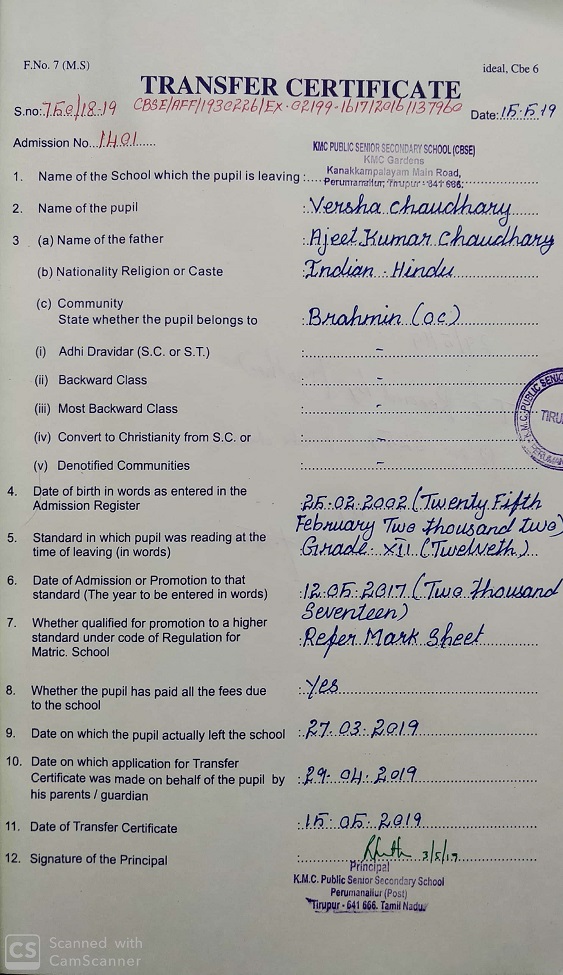 F.No. 7 (M.S)
ideal, Cbe 6
TRANSFER CERTIFICATE
S.no: 750/18-19 CBSE/AFF/1930226/EX-02199-1617/2016/137960 Date: 15.5.19
Admission No. 1401
KMC PUBLIC SENIOR SECONDARY SCHOOL (CBSE)
KMC Gardens
Kanakkampalayam Main Road,
1. Name of the School which the pupil is leaving : Perumanallur, Tirupur - 641 666.
2. Name of the pupil : Versha Chaudhary
3 (a) Name of the father : Ajeet Kumar Chaudhary
(b) Nationality Religion or Caste : Indian - Hindu
(c) Community
State whether the pupil belongs to : Brahmin (oc)
(i) Adhi Dravidar (S.C. or S.T.) : -
(ii) Backward Class : -
(iii) Most Backward Class : -
(iv) Convert to Christianity from S.C. or : -
(v) Denotified Communities : -
K.M.C. PUBLIC SENIO
TIRU
PERUMAN
4. Date of birth in words as entered in the
Admission Register : 25.02.2002 (Twenty Fifth
February Two thousand two)
5. Standard in which pupil was reading at the
time of leaving (in words) : Grade - XII (Twelveth)
6. Date of Admission or Promotion to that
standard (The year to be entered in words) : 12.05.2017 (Two thousand
Seventeen)
7. Whether qualified for promotion to a higher
standard under code of Regulation for : Refer Mark Sheet
Matric. School
8. Whether the pupil has paid all the fees due : Yes
to the school
9. Date on which the pupil actually left the school : 27.03.2019
10. Date on which application for Transfer
Certificate was made on behalf of the pupil by : 29.04.2019
his parents / guardian
11. Date of Transfer Certificate : 15.05.2019
12. Signature of the Principal : 3/5/19
Principal
K.M.C. Public Senior Secondary School
Perumanallur (Post)
Tirupur - 641 666. Tamil Nadu.
CS Scanned with
CamScanner